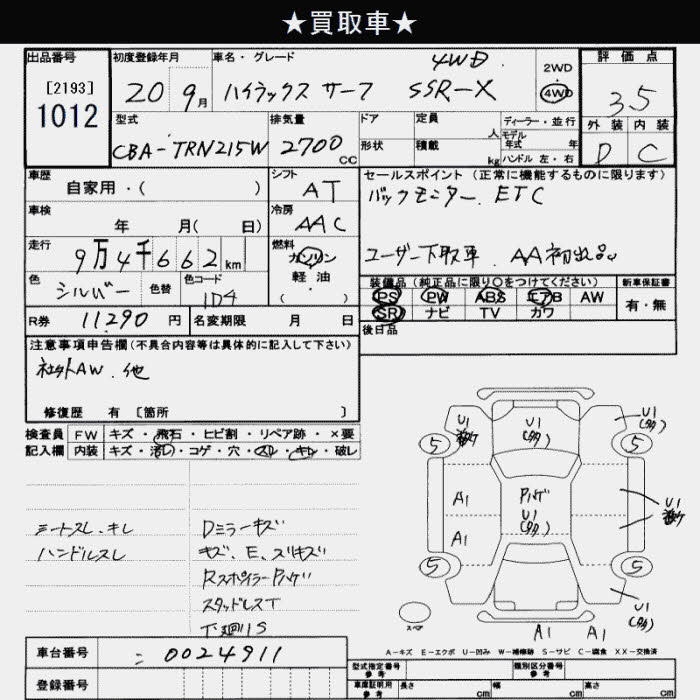 ★買取車★
出品番号
[2193]
1012
初度登録年月
20 9月
車名・グレード
4WD
ハイラックス サーフ SSR-X
2WD
・
4WD
評価点
3.5
外装 内装
D C
型式
CBA-TRN215W
排気量
2700 CC
ドア
定員
人
ディーラー・並行
モデル
年式 年
形状
積載
kg
ハンドル 左・右
車歴
自家用・( )
シフト
AT
セールスポイント (正常に機能するものに限ります)
バックモニター、ETC
ユーザー下取車、AA初出品
車検
年 月( 日)
冷房
AAC
走行
9万4千662km
燃料
ガソリン
軽・油
( )
色
シルバー
色替
色コード
1D4
装備品 (純正品に限り○をつけてください)
新車保証書
PS PW ABS エアB AW
有・無
SR ナビ TV カワ
R券 11290 円
名変期限 月 日
後日品
注意事項申告欄(不具合内容等は具体的に記入して下さい)
社外AW、他
修復歴 有 [箇所 ]
検査員
記入欄
FW キズ・飛石・ヒビ割・リペア跡・×要
内装 キズ・汚れ・コゲ・穴・スレ・キレ・破レ
シートスレ、キレ
ハンドルスレ
Dミラーキズ
キズ、E、スリキズ
Rスポイラー Pハゲ
スタッドレスT
下廻りS
U1
U1
(タタ)
U1
(タタ)
5 5
A1
A1
Pハゲ
U1
(タタ)
U1
5 5
U1
(タタ)
スペア
A1 A1
A-キズ E-エクボ U-凹み W-補修跡 S-サビ C-腐食 XX-交換済
車台番号
0024911
登録番号
型式指定番号
参考
類別区分番号
参考
車庫証明用
参考
長さ cm
幅 cm
高さ cm